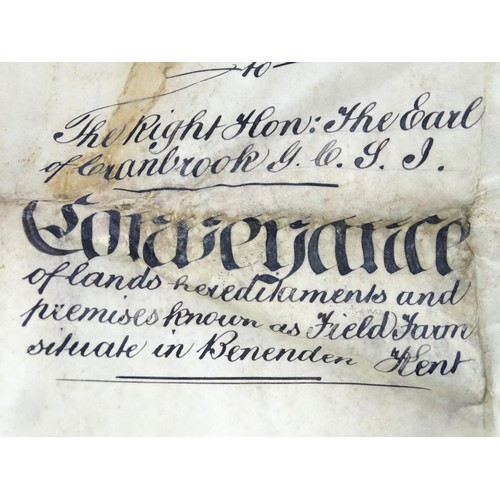 to
The Right Hon: The Earl
of Cranbrook G. C. S. I.
Conveyance
of lands hereditaments and
premises known as Field Farm
situate in Benenden Kent